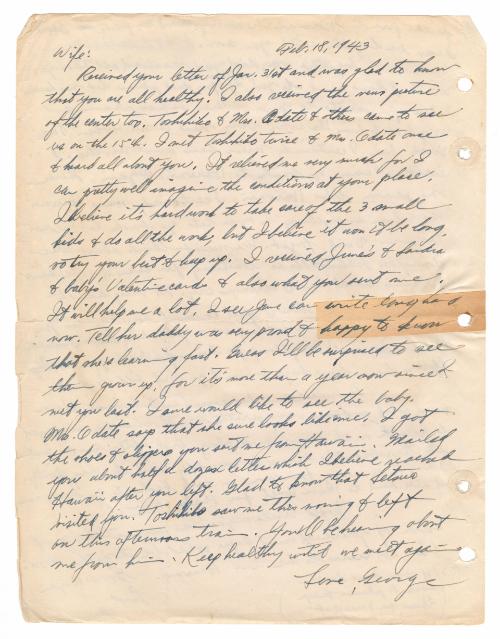 Feb. 18, 1943
Wife:
Received your letter of Jan. 31st and was glad to know
that you are all healthy. I also received the view picture
of the center too. Toshihiko & Mrs. Odate & others came to see
us on the 15th. I met Toshihiko twice & Mrs. Odate once
& heard all about you. It relieved me very much for I
can pretty well imagine the conditions at your place.
I believe it's hard work to take care of the 3 small
kids & do all the work, but I believe it won't be long,
so try your best & keep up. I received June's & Sandra
& baby's Valentine card & also what you sent me.
It will help me a lot. I see June can write longhand
now. Tell her daddy was very proud & happy to know
that she's learning fast. Guess I'll be surprised to see
them grown up, for it's more than a year now since I
met you last. I sure would like to see the baby.
Mrs. Odate says that she sure looks like me. I got
the shoes & slippers you sent me from Hawaii. Mailed
you about half a dozen letters which I believe reached
Hawaii after you left. Glad to know that Setsuo
visited you. Toshihiko saw me this morning & left
on this afternoons train. You'll be hearing about
me from him. Keep healthy until we meet again
Love, George